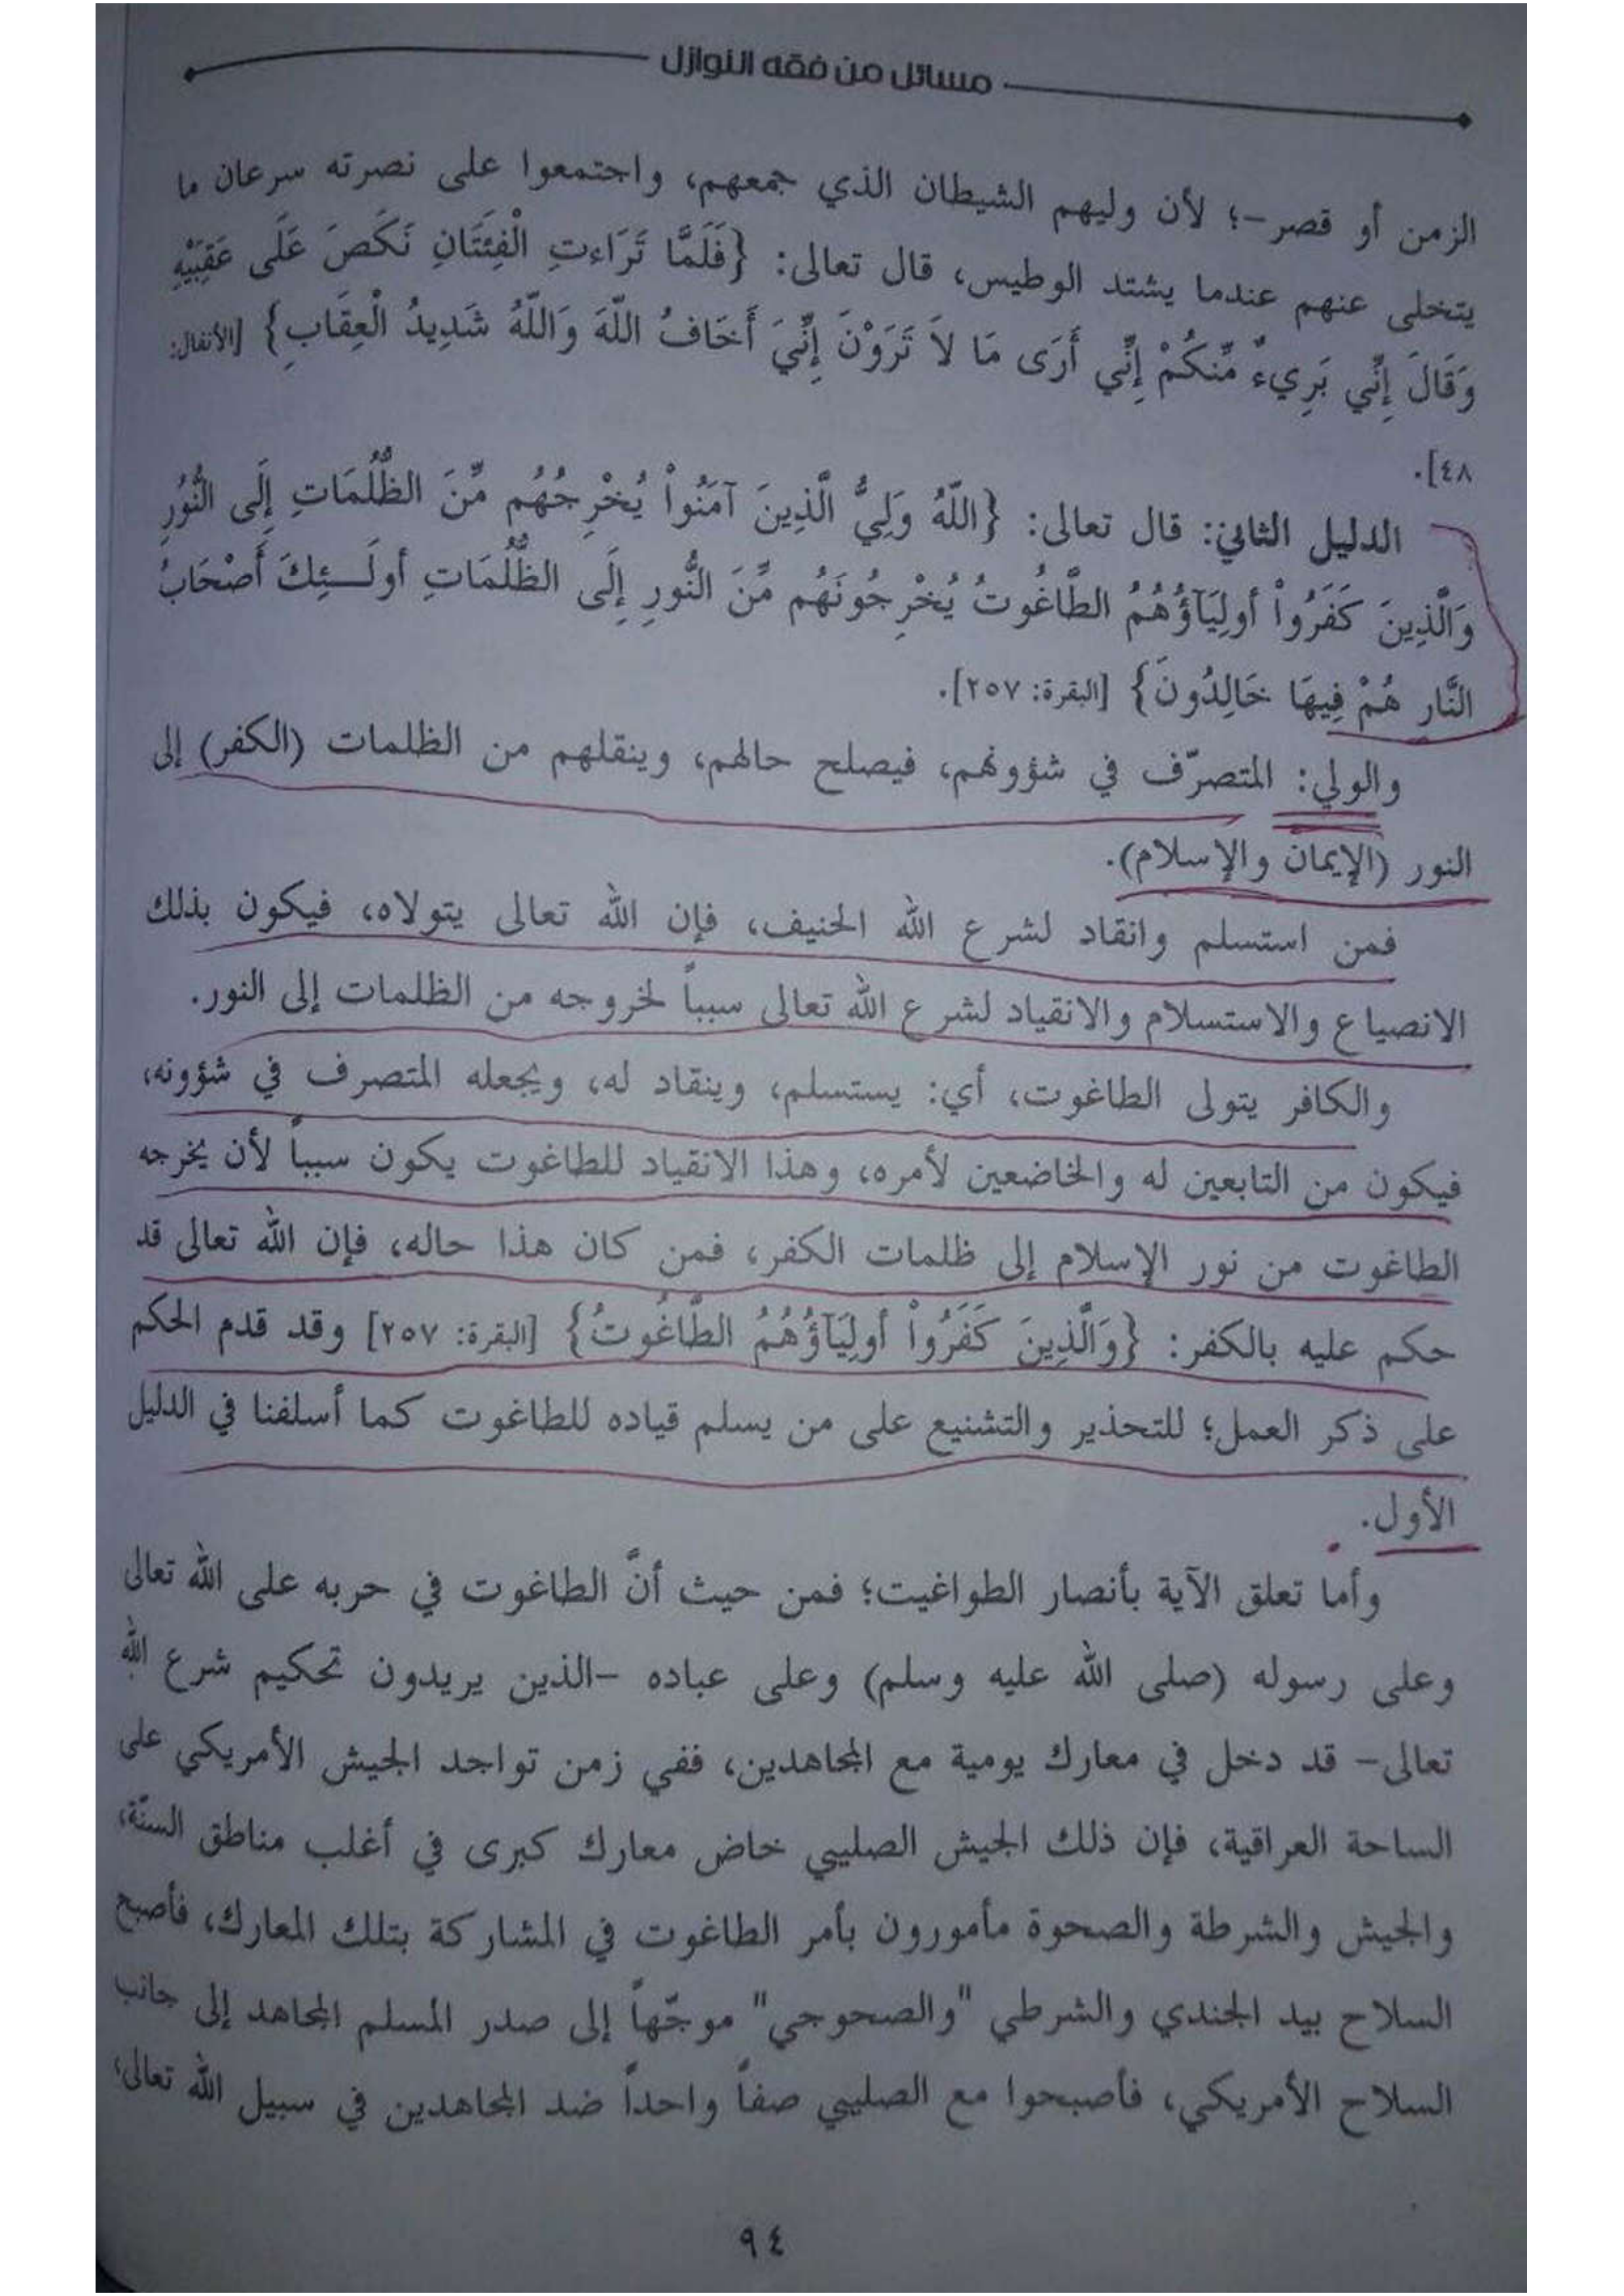 مسائل من فقه النوازل
الزمن أو قصر-؛ لأن وليهم الشيطان الذي جمعهم، واجتمعوا على نصرته سرعان ما
يتخلى عنهم عندما يشتد الوطيس، قال تعالى: {فَلَمَّا تَرَاءتِ الْفِئَتَانِ نَكَصَ عَلَى عَقِبَيْهِ
وَقَالَ إِنِّي بَرِيءٌ مِّنكُمْ إِنِّي أَرَى مَا لاَ تَرَوْنَ إِنِّيَ أَخَافُ اللّهَ وَاللّهُ شَدِيدُ الْعِقَابِ} [الأنفال:
٤٨].
الدليل الثاني: قال تعالى: {اللّهُ وَلِيُّ الَّذِينَ آمَنُواْ يُخْرِجُهُم مِّنَ الظُّلُمَاتِ إِلَى النُّوُرِ
وَالَّذِينَ كَفَرُواْ أَولِيَآؤُهُمُ الطَّاغُوتُ يُخْرِجُونَهُم مِّنَ النُّورِ إِلَى الظُّلُمَاتِ أُولَـــئِكَ أَصْحَابُ
النَّارِ هُمْ فِيهَا خَالِدُونَ} [البقرة: ٢٥٧].
والولي: المتصرّف في شؤونهم، فيصلح حالهم، وينقلهم من الظلمات (الكفر) إلى
النور (الإيمان والإسلام).
فمن استسلم وانقاد لشرع الله الحنيف، فإن الله تعالى يتولاه، فيكون بذلك
الانصياع والاستسلام والانقياد لشرع الله تعالى سبباً لخروجه من الظلمات إلى النور.
والكافر يتولى الطاغوت، أي: يستسلم، وينقاد له، ويجعله المتصرف في شؤونه،
فيكون من التابعين له والخاضعين لأمره، وهذا الانقياد للطاغوت يكون سبباً لأن يخرجه
الطاغوت من نور الإسلام إلى ظلمات الكفر، فمن كان هذا حاله، فإن الله تعالى قد
حكم عليه بالكفر: {وَالَّذِينَ كَفَرُواْ أَولِيَآؤُهُمُ الطَّاغُوتُ} [البقرة: ٢٥٧] وقد قدم الحكم
على ذكر العمل؛ للتحذير والتشنيع على من يسلم قياده للطاغوت كما أسلفنا في الدليل
الأول.
وأما تعلق الآية بأنصار الطواغيت؛ فمن حيث أنَّ الطاغوت في حربه على الله تعالى
وعلى رسوله (صلى الله عليه وسلم) وعلى عباده -الذين يريدون تحكيم شرع الله
تعالى- قد دخل في معارك يومية مع المجاهدين، ففي زمن تواجد الجيش الأمريكي على
الساحة العراقية، فإن ذلك الجيش الصليبي خاض معارك كبرى في أغلب مناطق السنّة،
والجيش والشرطة والصحوة مأمورون بأمر الطاغوت في المشاركة بتلك المعارك، فأصبح
السلاح بيد الجندي والشرطي "والصحوجي" موجّهاً إلى صدر المسلم المجاهد إلى جانب
السلاح الأمريكي، فأصبحوا مع الصليبي صفاً واحداً ضد المجاهدين في سبيل الله تعالى،
٩٤